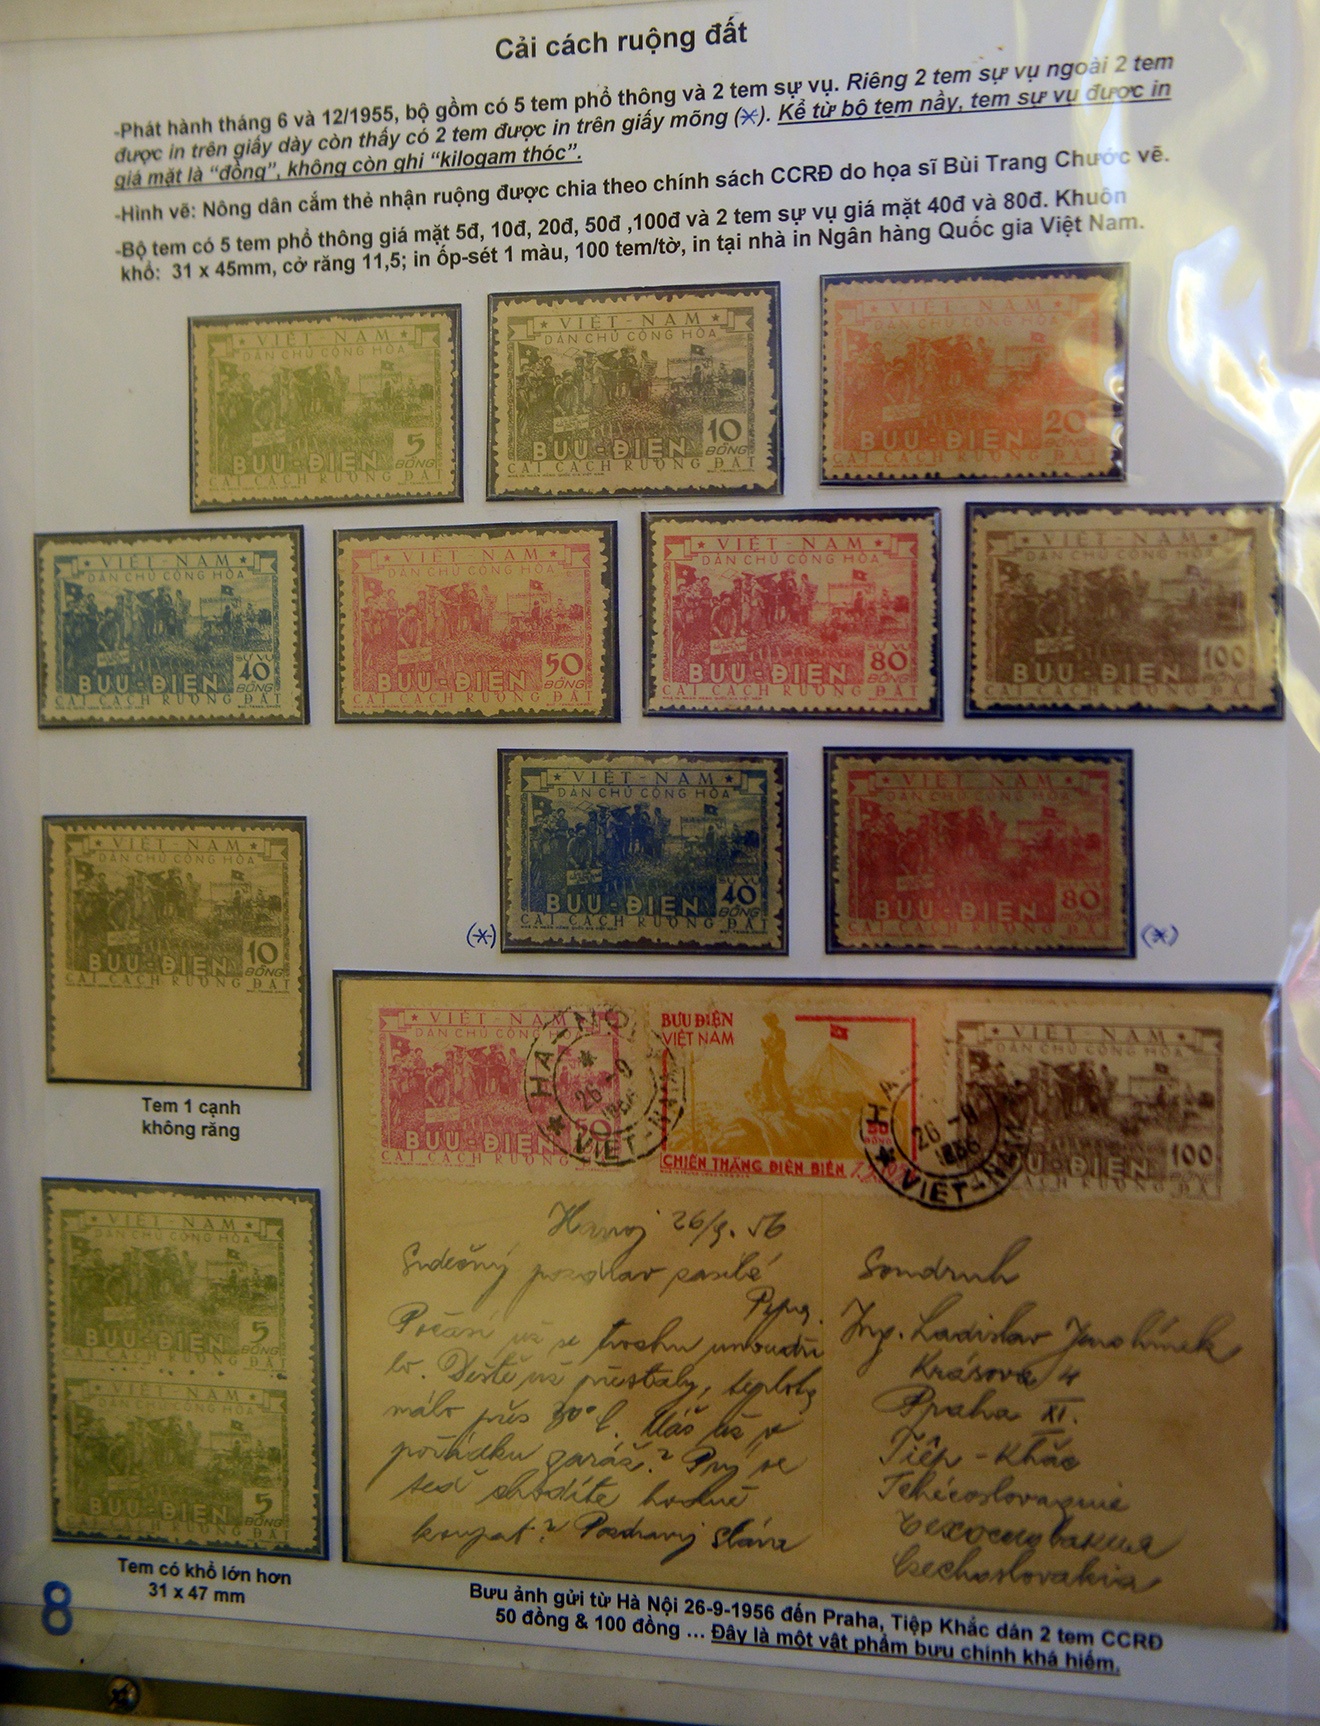 Cải cách ruộng đất
-Phát hành tháng 6 và 12/1955, bộ gồm có 5 tem phổ thông và 2 tem sự vụ. Riêng 2 tem sự vụ ngoài 2 tem
được in trên giấy dày còn thấy có 2 tem được in trên giấy mõng (*). Kể từ bộ tem nầy, tem sự vụ được in
giá mặt là “đồng”, không còn ghi “kilogam thóc”.
-Hình vẽ: Nông dân cắm thẻ nhận ruộng được chia theo chính sách CCRĐ do họa sĩ Bùi Trang Chước vẽ.
-Bộ tem có 5 tem phổ thông giá mặt 5đ, 10đ, 20đ, 50đ ,100đ và 2 tem sự vụ giá mặt 40đ và 80đ. Khuôn
khổ: 31 x 45mm, cở răng 11,5; in ốp-sét 1 màu, 100 tem/tờ, in tại nhà in Ngân hàng Quốc gia Việt Nam.
VIỆT-NAM
DÂN CHỦ CỘNG HÒA
5
BƯU-ĐIỆN ĐỒNG
CẢI CÁCH RUỘNG ĐẤT
VIỆT-NAM
DÂN CHỦ CỘNG HÒA
10
BƯU-ĐIỆN ĐỒNG
CẢI CÁCH RUỘNG ĐẤT
VIỆT-NAM
DÂN CHỦ CỘNG HÒA
20
BƯU-ĐIỆN ĐỒNG
CẢI CÁCH RUỘNG ĐẤT
VIỆT-NAM
DÂN CHỦ CỘNG HÒA
SỰ VỤ
40
BƯU-ĐIỆN ĐỒNG
CẢI CÁCH RUỘNG ĐẤT
VIỆT-NAM
DÂN CHỦ CỘNG HÒA
50
BƯU-ĐIỆN ĐỒNG
CẢI CÁCH RUỘNG ĐẤT
VIỆT-NAM
DÂN CHỦ CỘNG HÒA
SỰ VỤ
80
BƯU-ĐIỆN ĐỒNG
CẢI CÁCH RUỘNG ĐẤT
VIỆT-NAM
DÂN CHỦ CỘNG HÒA
100
BƯU-ĐIỆN ĐỒNG
CẢI CÁCH RUỘNG ĐẤT
VIỆT-NAM
DÂN CHỦ CỘNG HÒA
SỰ VỤ
40
BƯU-ĐIỆN ĐỒNG
CẢI CÁCH RUỘNG ĐẤT
(*)
VIỆT-NAM
DÂN CHỦ CỘNG HÒA
SỰ VỤ
80
BƯU-ĐIỆN ĐỒNG
CẢI CÁCH RUỘNG ĐẤT
(*)
VIỆT-NAM
DÂN CHỦ CỘNG HÒA
10
BƯU-ĐIỆN ĐỒNG
CẢI CÁCH RUỘNG ĐẤT
Tem 1 cạnh
không răng
VIỆT-NAM
DÂN CHỦ CỘNG HÒA
5
BƯU-ĐIỆN ĐỒNG
CẢI CÁCH RUỘNG ĐẤT
VIỆT-NAM
DÂN CHỦ CỘNG HÒA
5
BƯU-ĐIỆN ĐỒNG
CẢI CÁCH RUỘNG ĐẤT
Tem có khổ lớn hơn
31 x 47 mm
VIỆT-NAM
DÂN CHỦ CỘNG HÒA
50
BƯU-ĐIỆN
CẢI CÁCH RUỘNG ĐẤT
HA-NOI
26-9
1956
VIET-NAM
BƯU ĐIỆN
VIỆT NAM
50
ĐỒNG
CHIẾN THẮNG ĐIỆN BIÊN
26-9
1956
VIET-NAM
VIỆT-NAM
DÂN CHỦ CỘNG HÒA
100
BƯU-ĐIỆN
CẢI CÁCH RUỘNG ĐẤT
Hanoj 26/9. 56
Srdečný pozdrav zasílá
Pepa.
Počasí už se trochu umoudři
lo. Deště už přestaly, teploty
málo přes 30° C. Máš už v
pořádku garáž? Prý se
teď chodíte hodně
koupat? Pozdravuj Sláva
Soudruh
Ing. Ladislav
Krásova 4
Praha XI.
Tiệp-Khắc
Tchécoslovaquie
Чехословакия
Čechoslovakia
Bưu ảnh gửi từ Hà Nội 26-9-1956 đến Praha, Tiệp Khắc dán 2 tem CCRĐ
50 đồng & 100 đồng ... Đây là một vật phẩm bưu chính khá hiếm.
8